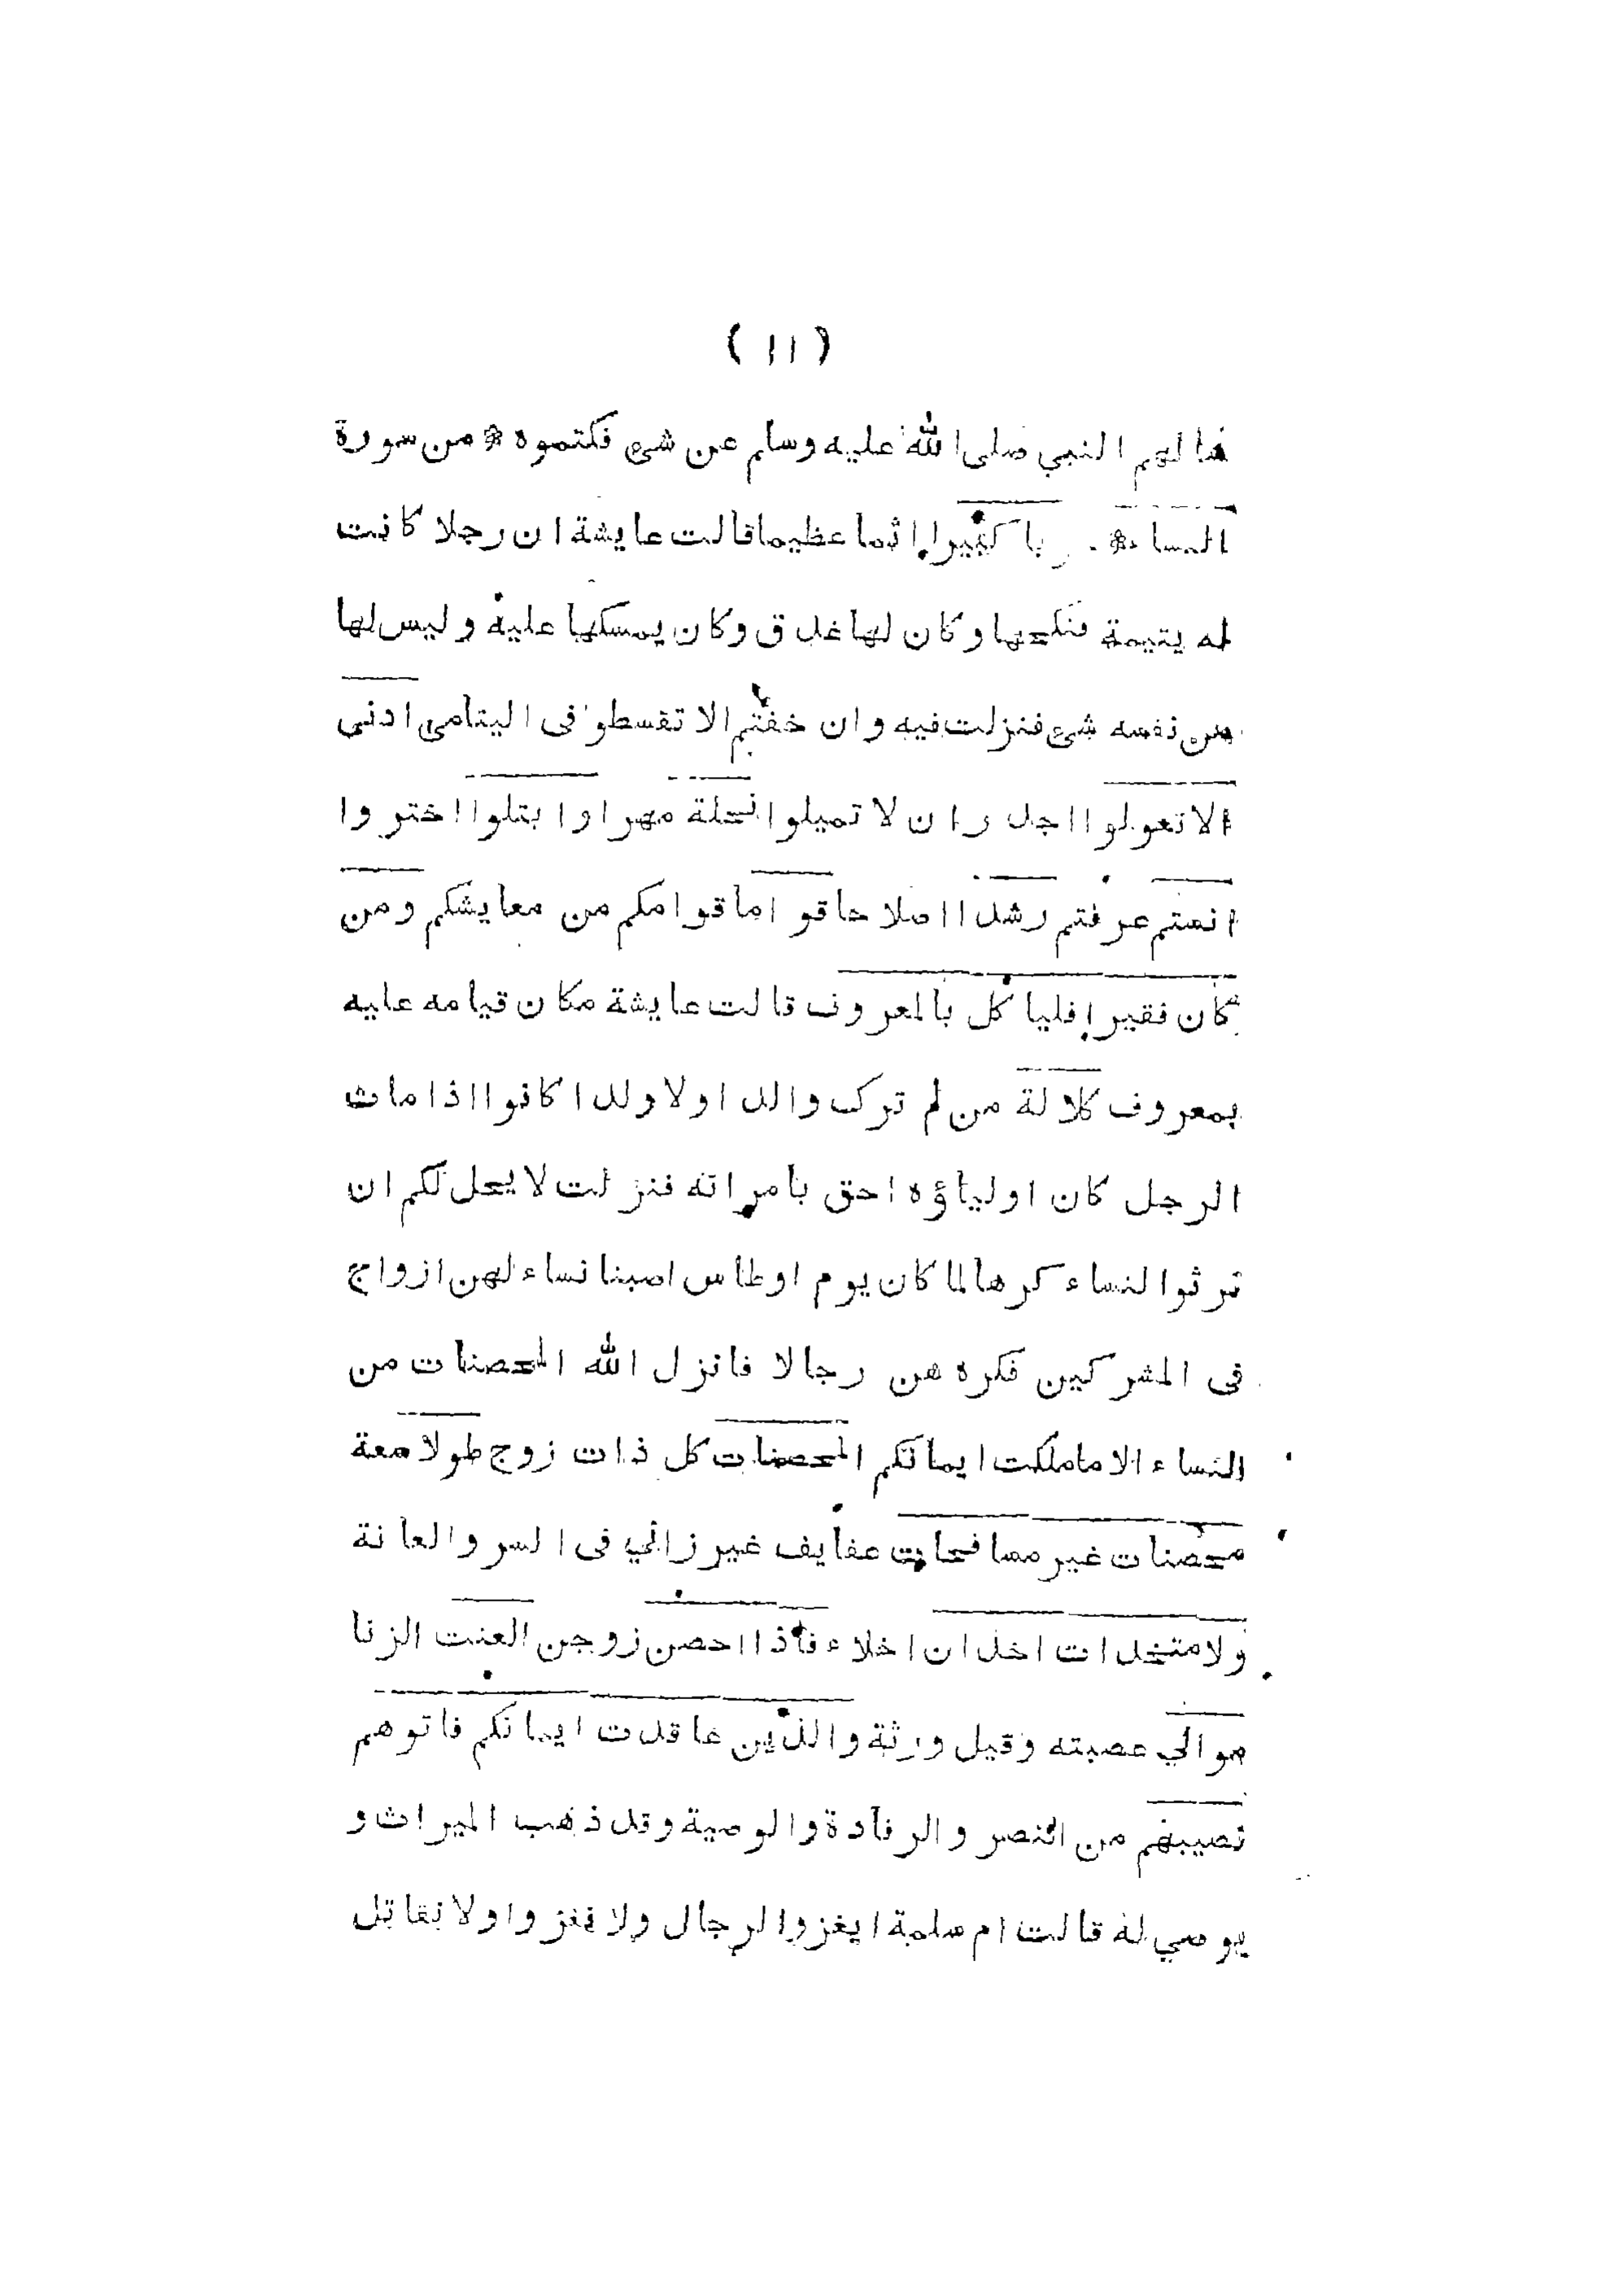 ( ١١ )
لهم النبي صلى الله عليه وسلم عن شيء فكتموه * من سورة
النساء * كبيرا اثما عظيما قالت عايشة ان رجلا كانت
له يتيمة فنكحها وكان لها عذق وكان يمسكها عليه وليس لها
من نفسه شيء فنزلت فيه وان خفتم الا تقسطوا فى اليتامى ادنى
الا تعولوا اجدر ان لا تميلوا نحلة مهرا وابتلوا اختبروا
انستم عرفتم رشدا اصلاحا قواما قوامكم من معايشكم ومن
كان فقيرا فلياكل بالمعروف قالت عايشة مكان قيامه عليه
بمعروف كلالة من لم ترك والدا ولا ولدا كانوا اذا مات
الرجل كان اولياؤه احق بامراته فنزلت لا يحل لكم ان
ترثوا النساء كرها لما كان يوم اوطاس اصبنا نساء لهن ازواج
فى المشركين فكره هن رجالا فانزل الله المحصنات من
النساء الا ما ملكت ايمانكم المحصنات كل ذات زوج طولا سعة
محصنات غير مسافحات عفايف غير زاني فى السر والعانة
ولا متخدات اخدان اخلاء فاذا احصن زوجن العنت الزنا
موالي عصبته وقيل ورثة والذين عاقدت ايمانكم فاتوهم
نصيبهم من النصر والرفادة والوصية وقد ذهب الميراث و
يوصي له قالت ام سلمة ايغزوا الرجال ولا نغزوا ولا نقاتل